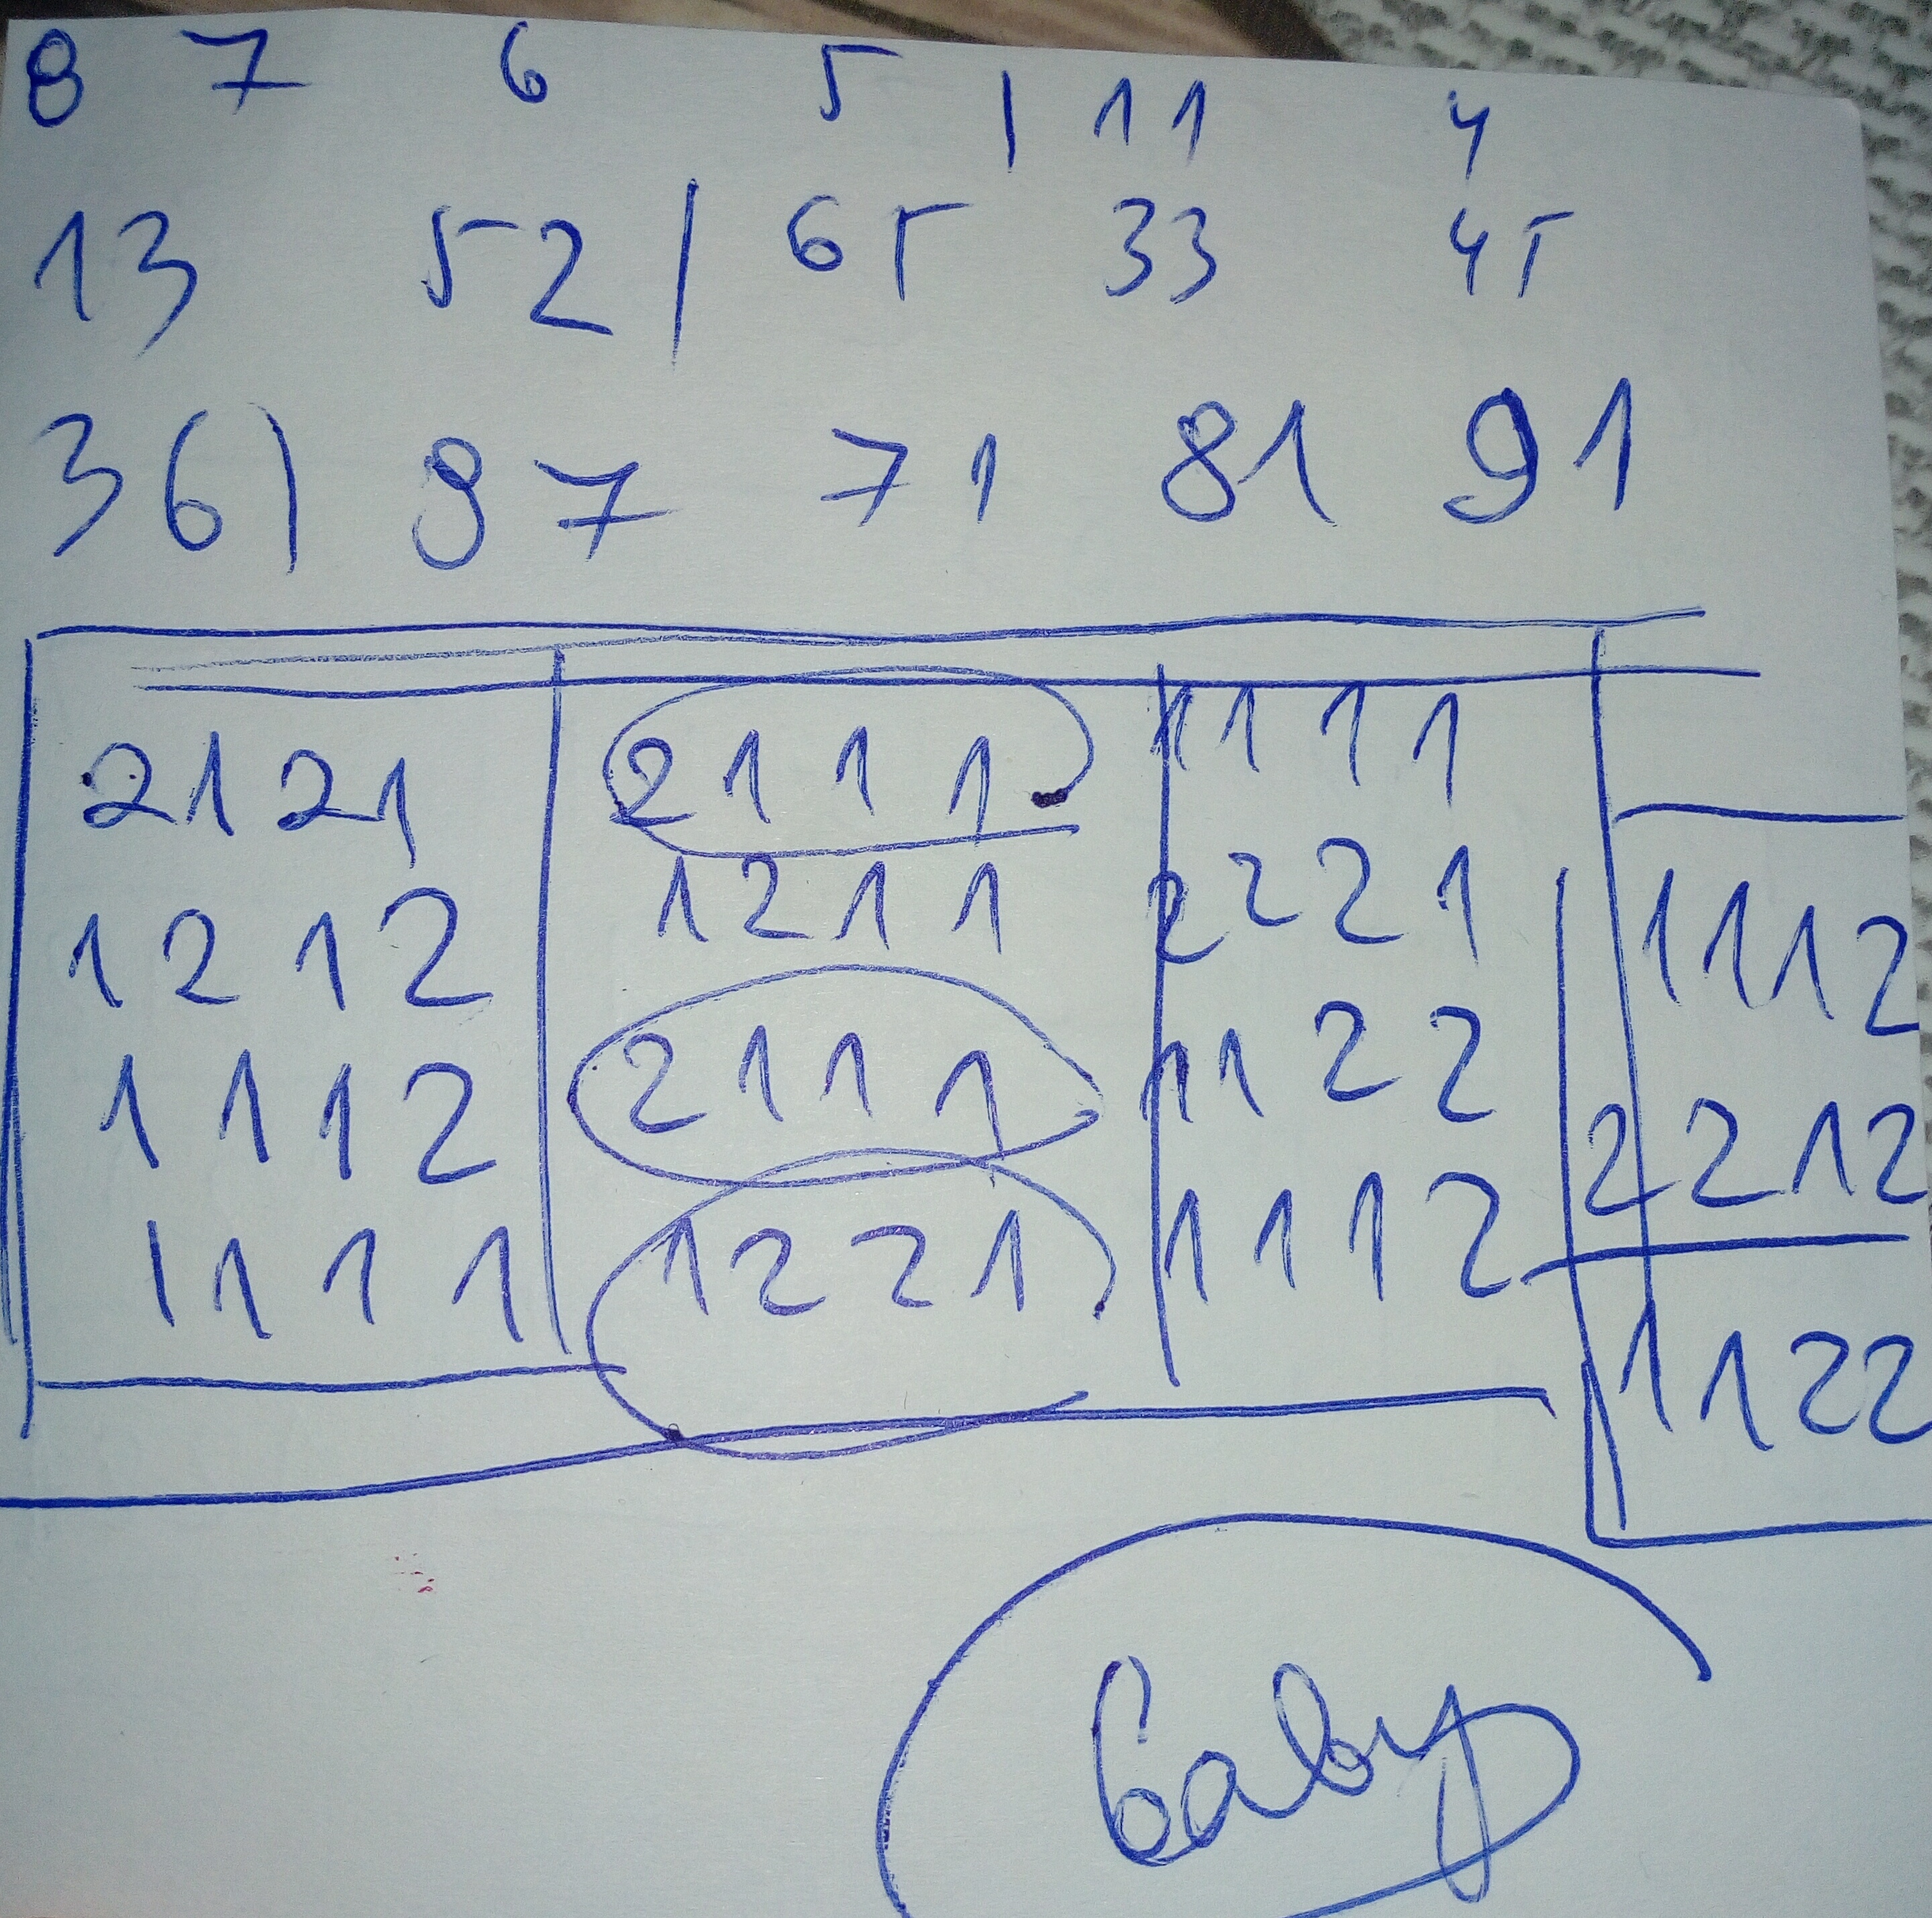 8 7 6 5 | 11 4
13 52 | 65 33 45
36 | 97 71 81 91
2121 2111 1111
1212 1211 2221 1112
1112 2111 1122 2212
1111 1221 1112 1122
Gaby